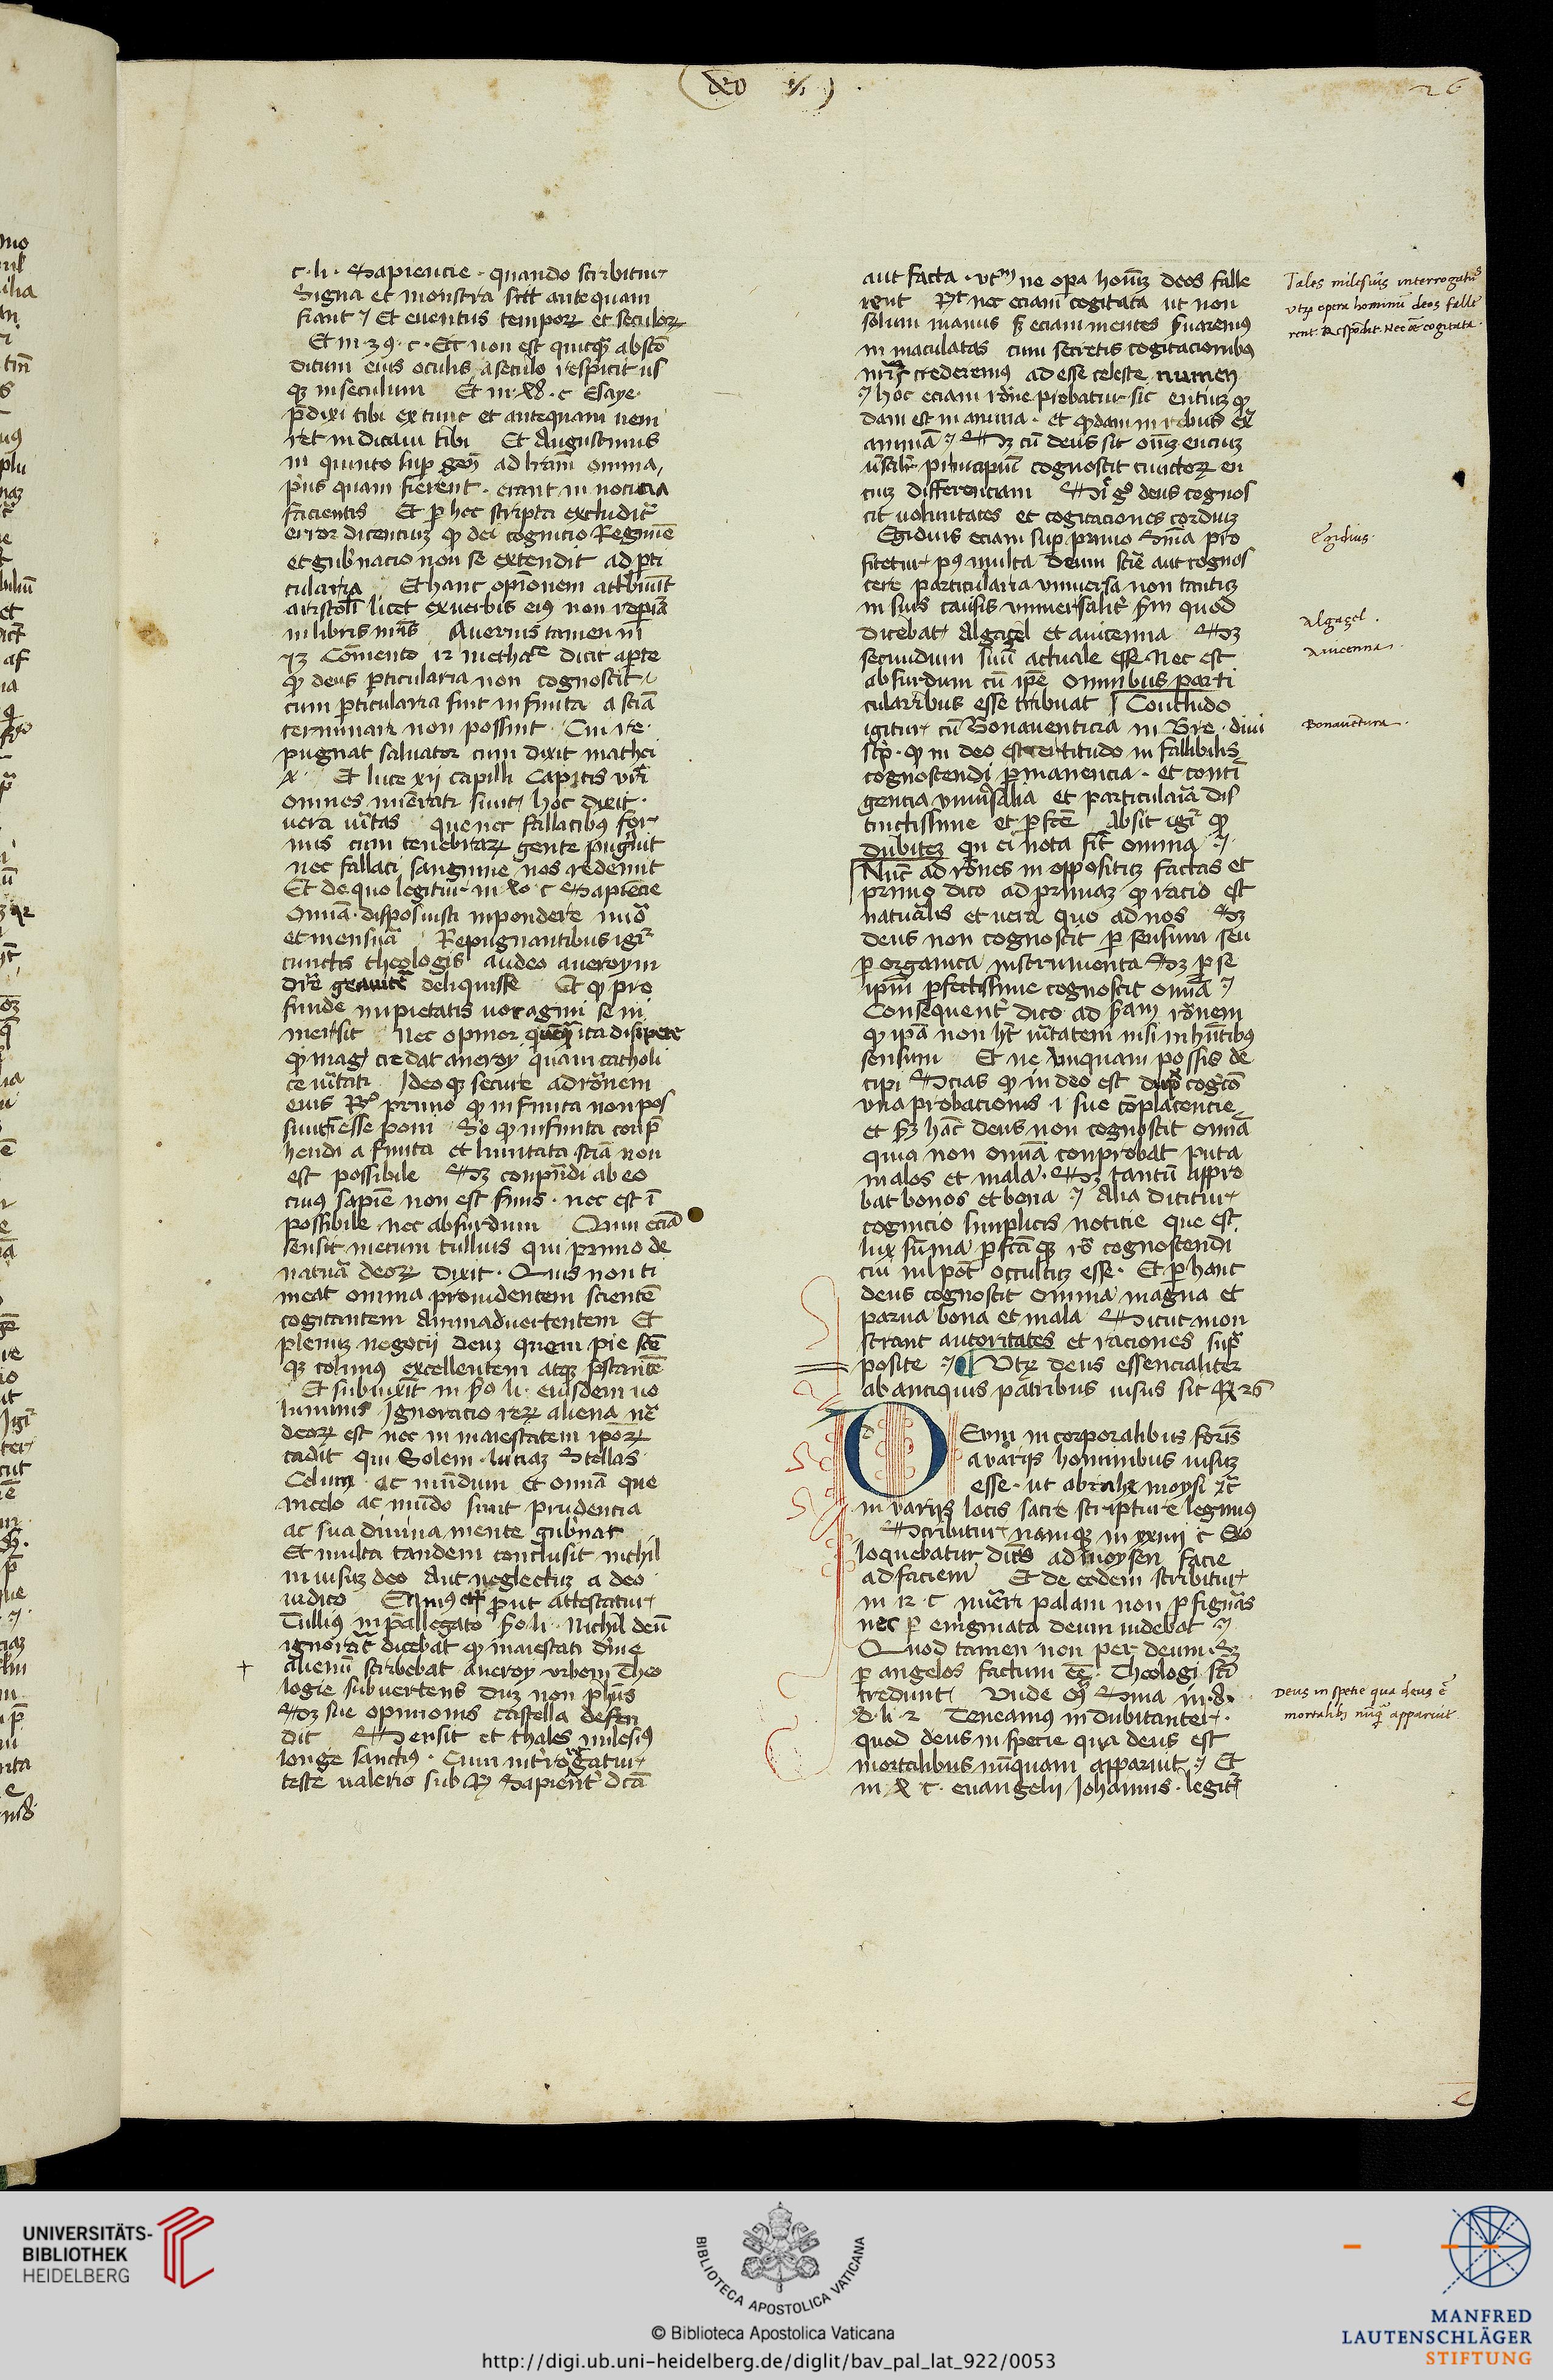 deo
26
c. li. Sapiencie. quando scribitur
Signa et monstra scit antequam
fiant Et euentus temporꝝ et seculoꝝ
Et in 39. c. Et non est quicqꝫ abscō
ditum eius oculis a seculo respicit us
qꝫ in seculum Et in c Esaye.
p̄dixi tibi ex tunc et antequam ueni
ret indicaui tibi Et Augustinus
in quinto suꝑ geñ ad lr̄am omnia
prius quam fierent. erant in noticia
facientis Et ꝑ hec scripta excluditr̄
error dicenciuꝫ ꝙ dei cognicio Regimē
et gub̄nacio non se extendit ad ꝑti
cularia Et hanc opinionem attribuūt
aristoli licet ex uerbis eiꝰ non repiā
in libris nr̄is Auerrois tamen in
Cōmento 12 methace dicit aperte
ꝙ deus ꝑticularia non cognoscit
cum ꝑticularia sint infinita a sciā
terminari non possint Cui re
pugnat saluator cum dixit mathei
x. Et luce xij capilli capitis vr̄i
omnes nūerati sunt hoc dixit.
uera ūitas que nec fallacibꝰ for
mis cum tenebraꝝ gente pugnūit
nec fallaci sanguine nos redemit
Et de quo legitur in xo c Sapiēcie
Omnīa disposuisti in pondere nūo
et mensurā Repugnantibus igr̄
cunctis theologis audeo aueroym
dicē grauitē deliquisse Et ꝙ pro
funde inpietatis uoragini se in
mersit Nec opinor quēqꝫ ita disipere
ꝙ magꝭ credat aueroy quam catholi
ce ūitati Ideo qꝫ secure ad rōnem
eius Rº primo ꝙ infinita non pos
sunt esse poni Sꝫ ꝙ infinita conp̄
hendi a finita et limitata sciā non
est possibile Sꝫ conpn̄di ab eo
cuiꝰ sapiē non est finis. nec est ī
possibile nec absurdum Cum eciā
sensit mecum tullius qui primo de
naturā deoꝝ dixit. Quis non ti
meat omnia prouidentem scientē
cogitantem Animaduertentem Et
plenuꝫ negocij deuꝫ quem pie scē
qꝫ colimꝰ excellentem atqꝫ p̄stantē
Et subiuxit in sº li. eiusdem uo
luminis Ignoracio reꝝ aliena nē
deoꝝ est nec in maiestatem ipōꝝ
cadit qui Solem. lunaꝫ Stellas
Celum ac mūdum et omnīa que
in celo ac mūdo sunt prudencia
ac sua diuina mente gub̄nat
Et multa tandem conclusit nichil
in uisuꝫ deo Aut neglectuꝫ a deo
iudico prout attestatur
Tulliꝰ in p̄allegato sºli. Nichil deū
ignorāt dicebat ꝙ maiestati dīne
alienū scribebat aueroy urbem Theo
logie subuertens duꝫ non ph̄us
Sꝫ sue opinionis castella defen
dit Sensit et thales milesiꝰ
longe sanctiꝰ. Cum intro gatur
teste ualerio sub Sapient̄ dcā
aut facta. vtm ne opa homīꝫ deos falle
rent Rt nec eciam cogitata ut non
solum manus sꝫ eciam mentes s̄uaremꝰ
in maculatas cum secretis cogitacionibꝰ
nr̄is crederemꝰ adesse celeste numen
hoc eciam rōne probatur sic entiuꝫ ꝙ
dam est in anima. et ꝙdam in rebus ex̄
animā Sꝫ cū deus sit oīuꝫ enciuꝫ
ūsale principiū cognoscit cunctoꝝ en
ciuꝫ differenciam Si gº deus cognos
cit uoluntates et cogitaciones cordiuꝫ
Egidius eciam suꝑ primo Sn̄ia pro
fitetur pꝰ multa deum scire aut cognos
cere particularia vniuersa non tantuꝫ
in suis causis vniuersalitr̄ s̄m quod
dicebat Algacel et auicenna Sꝫ
secundum suū actuale esse Nec est
absurdum cū ip̄e omnibus parti
cularibus esse tribuat Concludo
igitur cū Bonauenticia in Bre. diui
scꝑ. ꝙ in deo est certitudo in fallibilis
cognoscendi ꝑmanencia. et conti
gencia vniūsalia et particularia dis
tinctissime et ꝑfcē Absit igr̄ ꝙ
dubiteꝫ qn ei nota sit omnia
Nunc ad rōnes in oppositiꝫ factas et
primo dico ad primaꝫ ꝙ racio est
naturalis et uera quo ad nos Sꝫ
deus non cognoscit ꝑ sensum seu
ꝑ organica instrumenta Sꝫ ꝑ se
ipm̄ ꝑfectissime cognoscit omnīa
Consequent̄ dico ad s̄am rōnem
ꝙ ip̄a non ht̄ ūitatem nisi in hn̄tibꝰ
sensum Et ne vnquam possis de
cipi Scias ꝙ in deo est dup̄ cogcō
vna probacionis i sue cōplacencie
et sꝫ hāc deus non cognoscit omnīa
quia non omnīa conprobat puta
malos et mala. Sꝫ tantū appro
bat bonos et bona Alia dicitur
cognicio simplicis noticie que est
lux sūma ꝑfcāqꝫ rō cognoscendi
cui nil pōt occultuꝫ esse. Et ꝑ hanc
deus cognoscit omnia magna et
parua bona et mala Sicut mon
strant autoritates et raciones supͣ
posite Utꝝ deus essencialiter
ab antiquis patribus uisus sit 26
Eum in corporalibus formīs
a uarijs hominibus uisuꝫ
esse. ut abrahe moysi ⁊c̄
in uarijs locis sacre scripture legimꝰ
Scribitur namqꝫ in xxiij c Exo
loquebatur dn̄s ad moysen facie
ad faciem Et de eodem scribitur
in 12 c nūeri palam non ꝑ figuras
nec ꝑ enigmata deum uidebat
Quod tamen non per deum Sꝫ
ꝑ angelos factum eē. Theologi sci
credunt Unde Sn̄ia in
li 2 Teneamꝰ indubitanter.
quod deus in specie qua deus est
mortalibus nūquam apparuit Et
in x c. euangelij Johannis. legitr̄
Tales milesius interrogatꝰ
vtꝝ opera hominū deos fallē
rent. Respōdit. Nec cogitata.
Egidius.
Algazel.
Auicenna.
Bonauentura.
Deus in specie qua deus ē
mortalibꝫ nūqͣ apparuit
UNIVERSITÄTS-
BIBLIOTHEK
HEIDELBERG
BIBLIOTECA APOSTOLICA VATICANA
© Biblioteca Apostolica Vaticana
http://digi.ub.uni-heidelberg.de/diglit/bav_pal_lat_922/0053
MANFRED
LAUTENSCHLÄGER
STIFTUNG